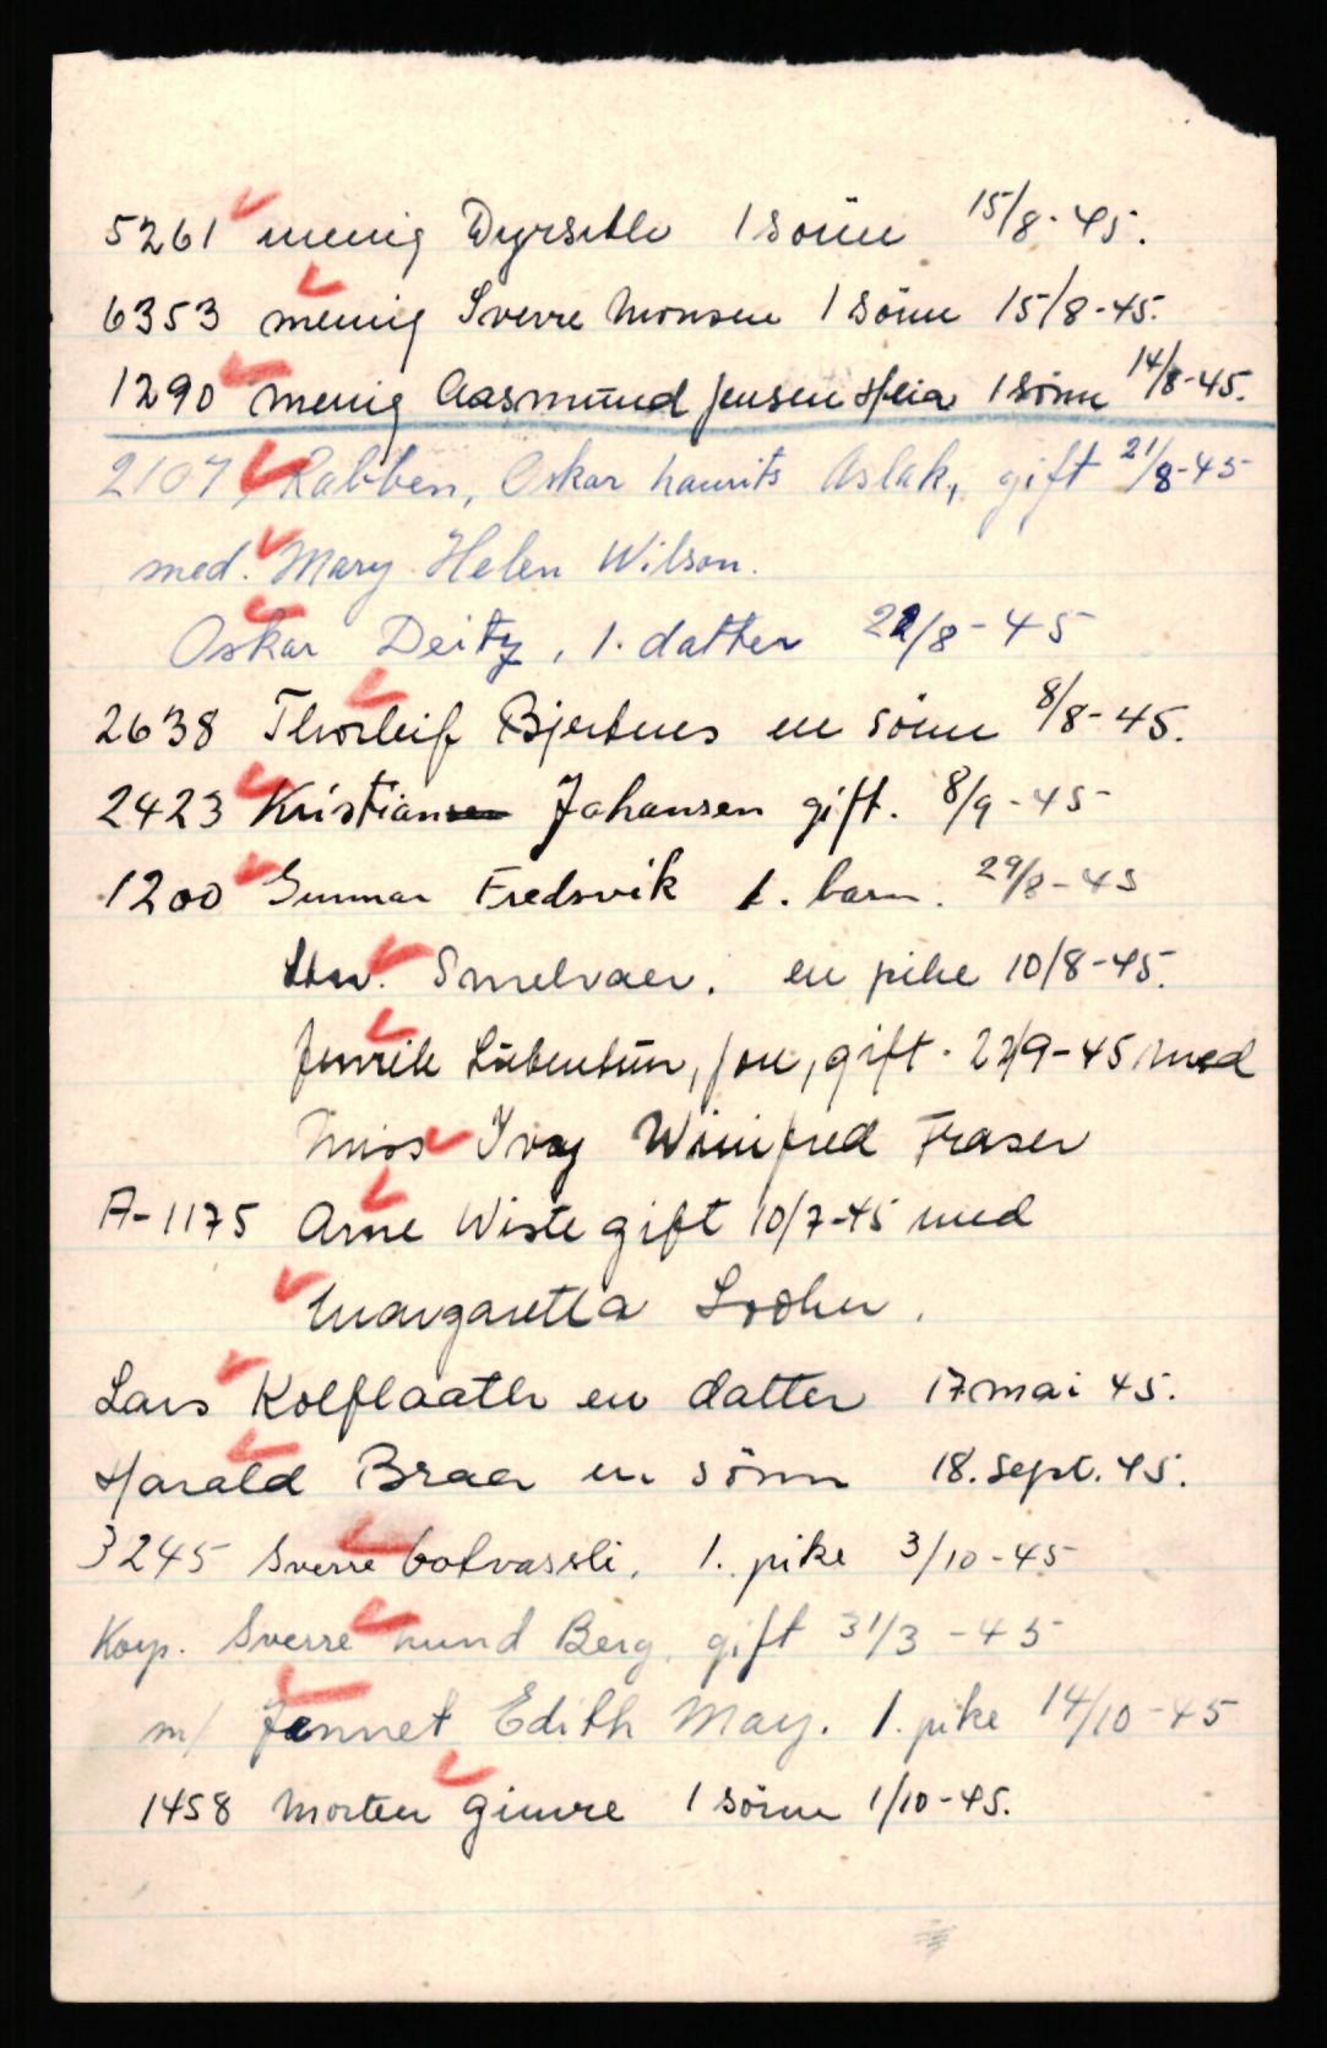 5261 menig Dyrseth 1 sönn 15/8-45.
6353 menig Sverre Monsen 1 sönn 15/8-45.
1290 menig Aasmund Jensen Heia 1 sönn 14/8-45.
2107, Rabben, Oskar Laurits Aslak, gift 21/8-45
med. Mary Helen Wilson.
Oskar Deitz, 1. datter 22/8-45
2638 Thorleif Bjertnes en sönn 8/8-45.
2423 Kristiansen Johansen gift. 8/9-45
1200 Gunnar Fredsvik 1. barn. 29/8-45
Smelvaer. en pike 10/8-45.
gift. 22/9-45 med
Miss Ivy Winifred Fraser
A-1175 Arne Wiste gift 10/7-45 med
Margaretta
Lars Kolflaath en datter 17. mai 45.
Harald Braa en sönn 18. sept. 45.
3245 Sverre Botvassli, 1. pike 3/10-45
Korp. Sverre Lund Berg, gift 31/3-45
m/ Jennet Edith May. 1. pike 14/10-45
1458 Morten Gimre 1 sönn 1/10-45.